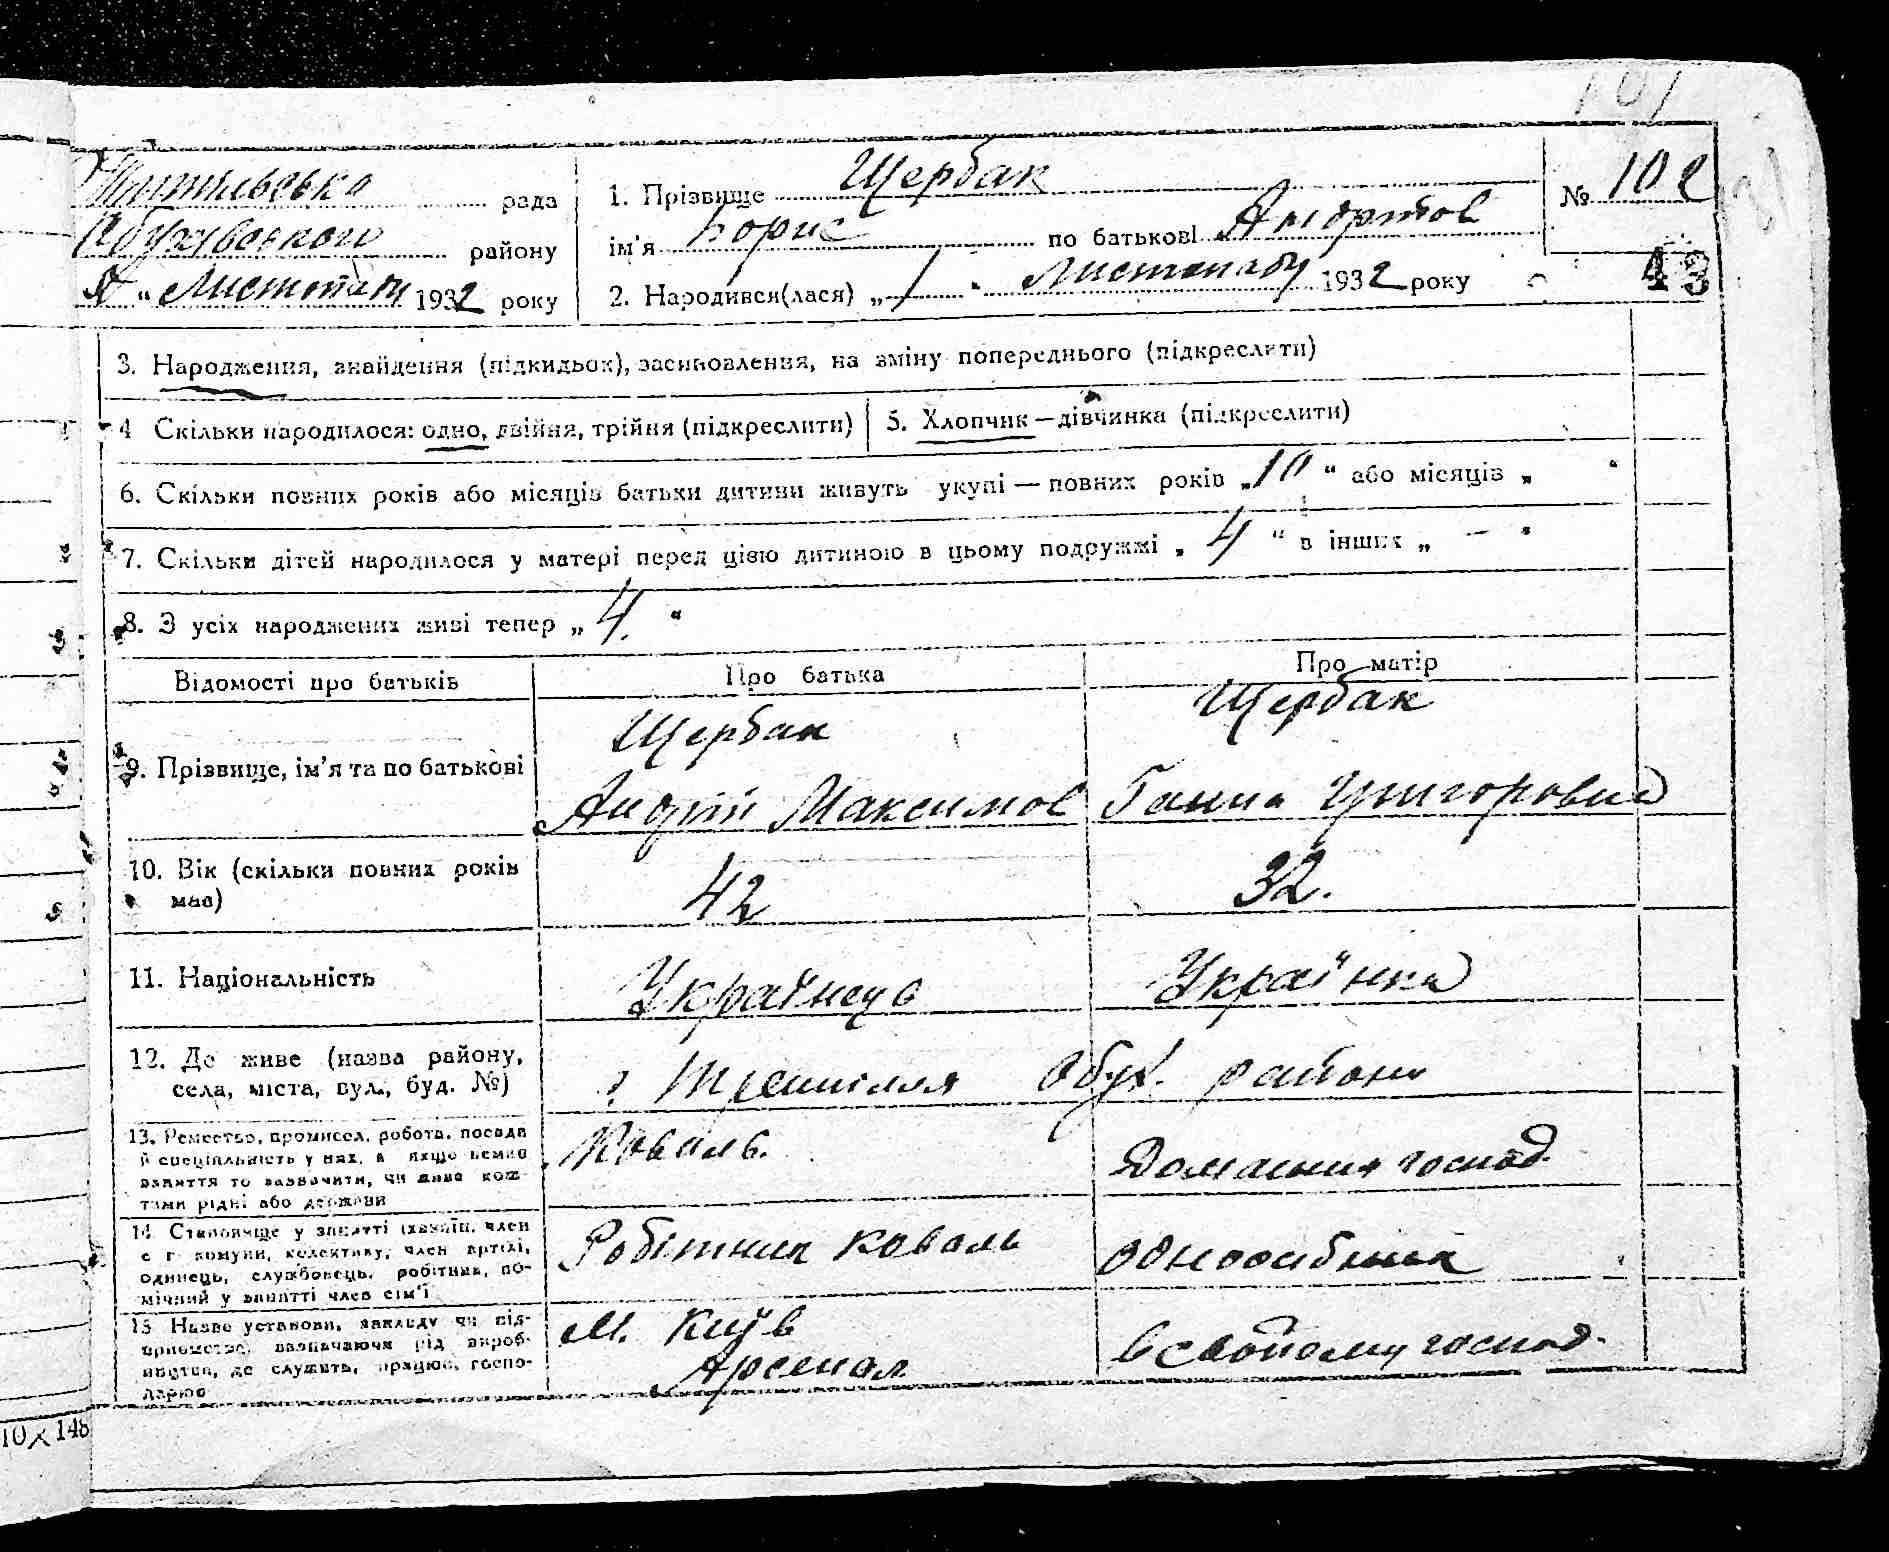 101
рада
1. Прізвище Щербак
№ 102
Обухівського району
ім'я Борис по батькові
43
" Листопаду 1932 року
2. Народився(лася) „ 1 " Листопаду 1932 року
3. Народження, знайдення (підкидьок), засиновлення, на зміну попереднього (підкреслити)
4 Скільки народилося: одно, двійня, трійня (підкреслити)
5. Хлопчик — дівчинка (підкреслити)
6. Скільки повних років або місяців батьки дитини живуть укупі — повних років „ 10 " або місяців „ "
7. Скільки дітей народилося у матері перед цією дитиною в цьому подружжі „ 4 " в інших „ — "
8. З усіх народжених живі тепер „ 4. "
Відомості про батьків
Про батька
Про матір
9. Прізвище, ім'я та по батькові
Щербак
Андрій Максимов
Щербак
Ганна Григоровна
10. Вік (скільки повних років має)
42
32.
11. Національність
Українець
Українка
12. Де живе (назва району,
села, міста, вул., буд. №)
Обух. району
13. Ремество, промисел, робота, посада
й спеціальність у них, а якщо немає
заняття то зазначити, чи живе кош-
тами рідні або держави
Коваль.
Домашня господ.
14. Становище у занятті (хазяїн, член
с г комуни, колективу, член артілі,
одинець, службовець, робітник, по-
мічний у занятті член сім'ї
Робітник коваль
одноосібник
15 Назва установи, закладу чи під-
приємства, зазначаючи рід вироб-
ництва, де служить, працює, госпо-
дарює
М. Київ
Арсенал
В свойому господ.
10 х 148